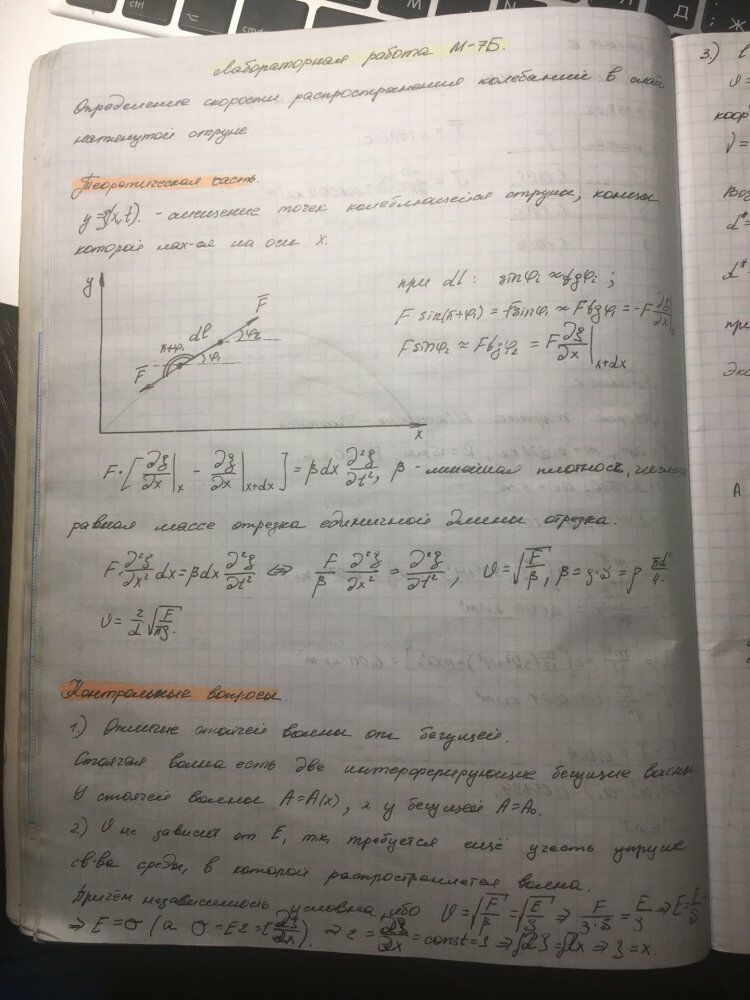 Лабораторная работа М-7Б.
Определение скорости распространения колебаний в слабо
натянутой струне.
Теоретическая часть.
y=ξ(x,t). - смещение точек колеблющейся струны, концы
которой нах-ся на оси x.
y
при dl: sinφi ≈ tgφi ;
F sin(π+φ1) = -Fsinφ1 ≈ Ftgφ1 = -F ∂ξ/∂x|x
Fsinφ2 ≈ Ftgφ2 = F ∂ξ/∂x|x+dx
F
dl
φ2
π+φ1
φ1
F
x
F·[∂ξ/∂x|x - ∂ξ/∂x|x+dx] = β dx ∂²ξ/∂t², β - линейная плотность, численно
равная массе отрезка единичной длины отрезка.
F ∂²ξ/∂x² dx = β dx ∂²ξ/∂t² ⇔ F/β ∂²ξ/∂x² = ∂²ξ/∂t², υ = √(F/β), β = ρ·S = ρ πd²/4.
υ = 2/d √(F/πρ).
Контрольные вопросы.
1.) Отличие стоячей волны от бегущей.
Стоячая волна есть две интерферирующие бегущие волны
У стоячей волны A=A(x), а у бегущей A=A₀.
2.) υ не зависит от E, т.к. требуется ещё учесть упругие
св-ва среды, в которой распространяется волна.
Причём независимость условна, ибо υ = √(F/β) = √(E/ρ) ⇒ F/(ρ·S) = E/ρ ⇒ E = F/S
⇒ E = σ (а σ = Eε = E ∂ξ/∂x) ⇒ ε = dξ/dx = const = 1 ⇒ ∫dξ = ∫dx ⇒ ξ = x.
3.)
υ =
коор
Воз
d* =
d* =
при
Экс
A